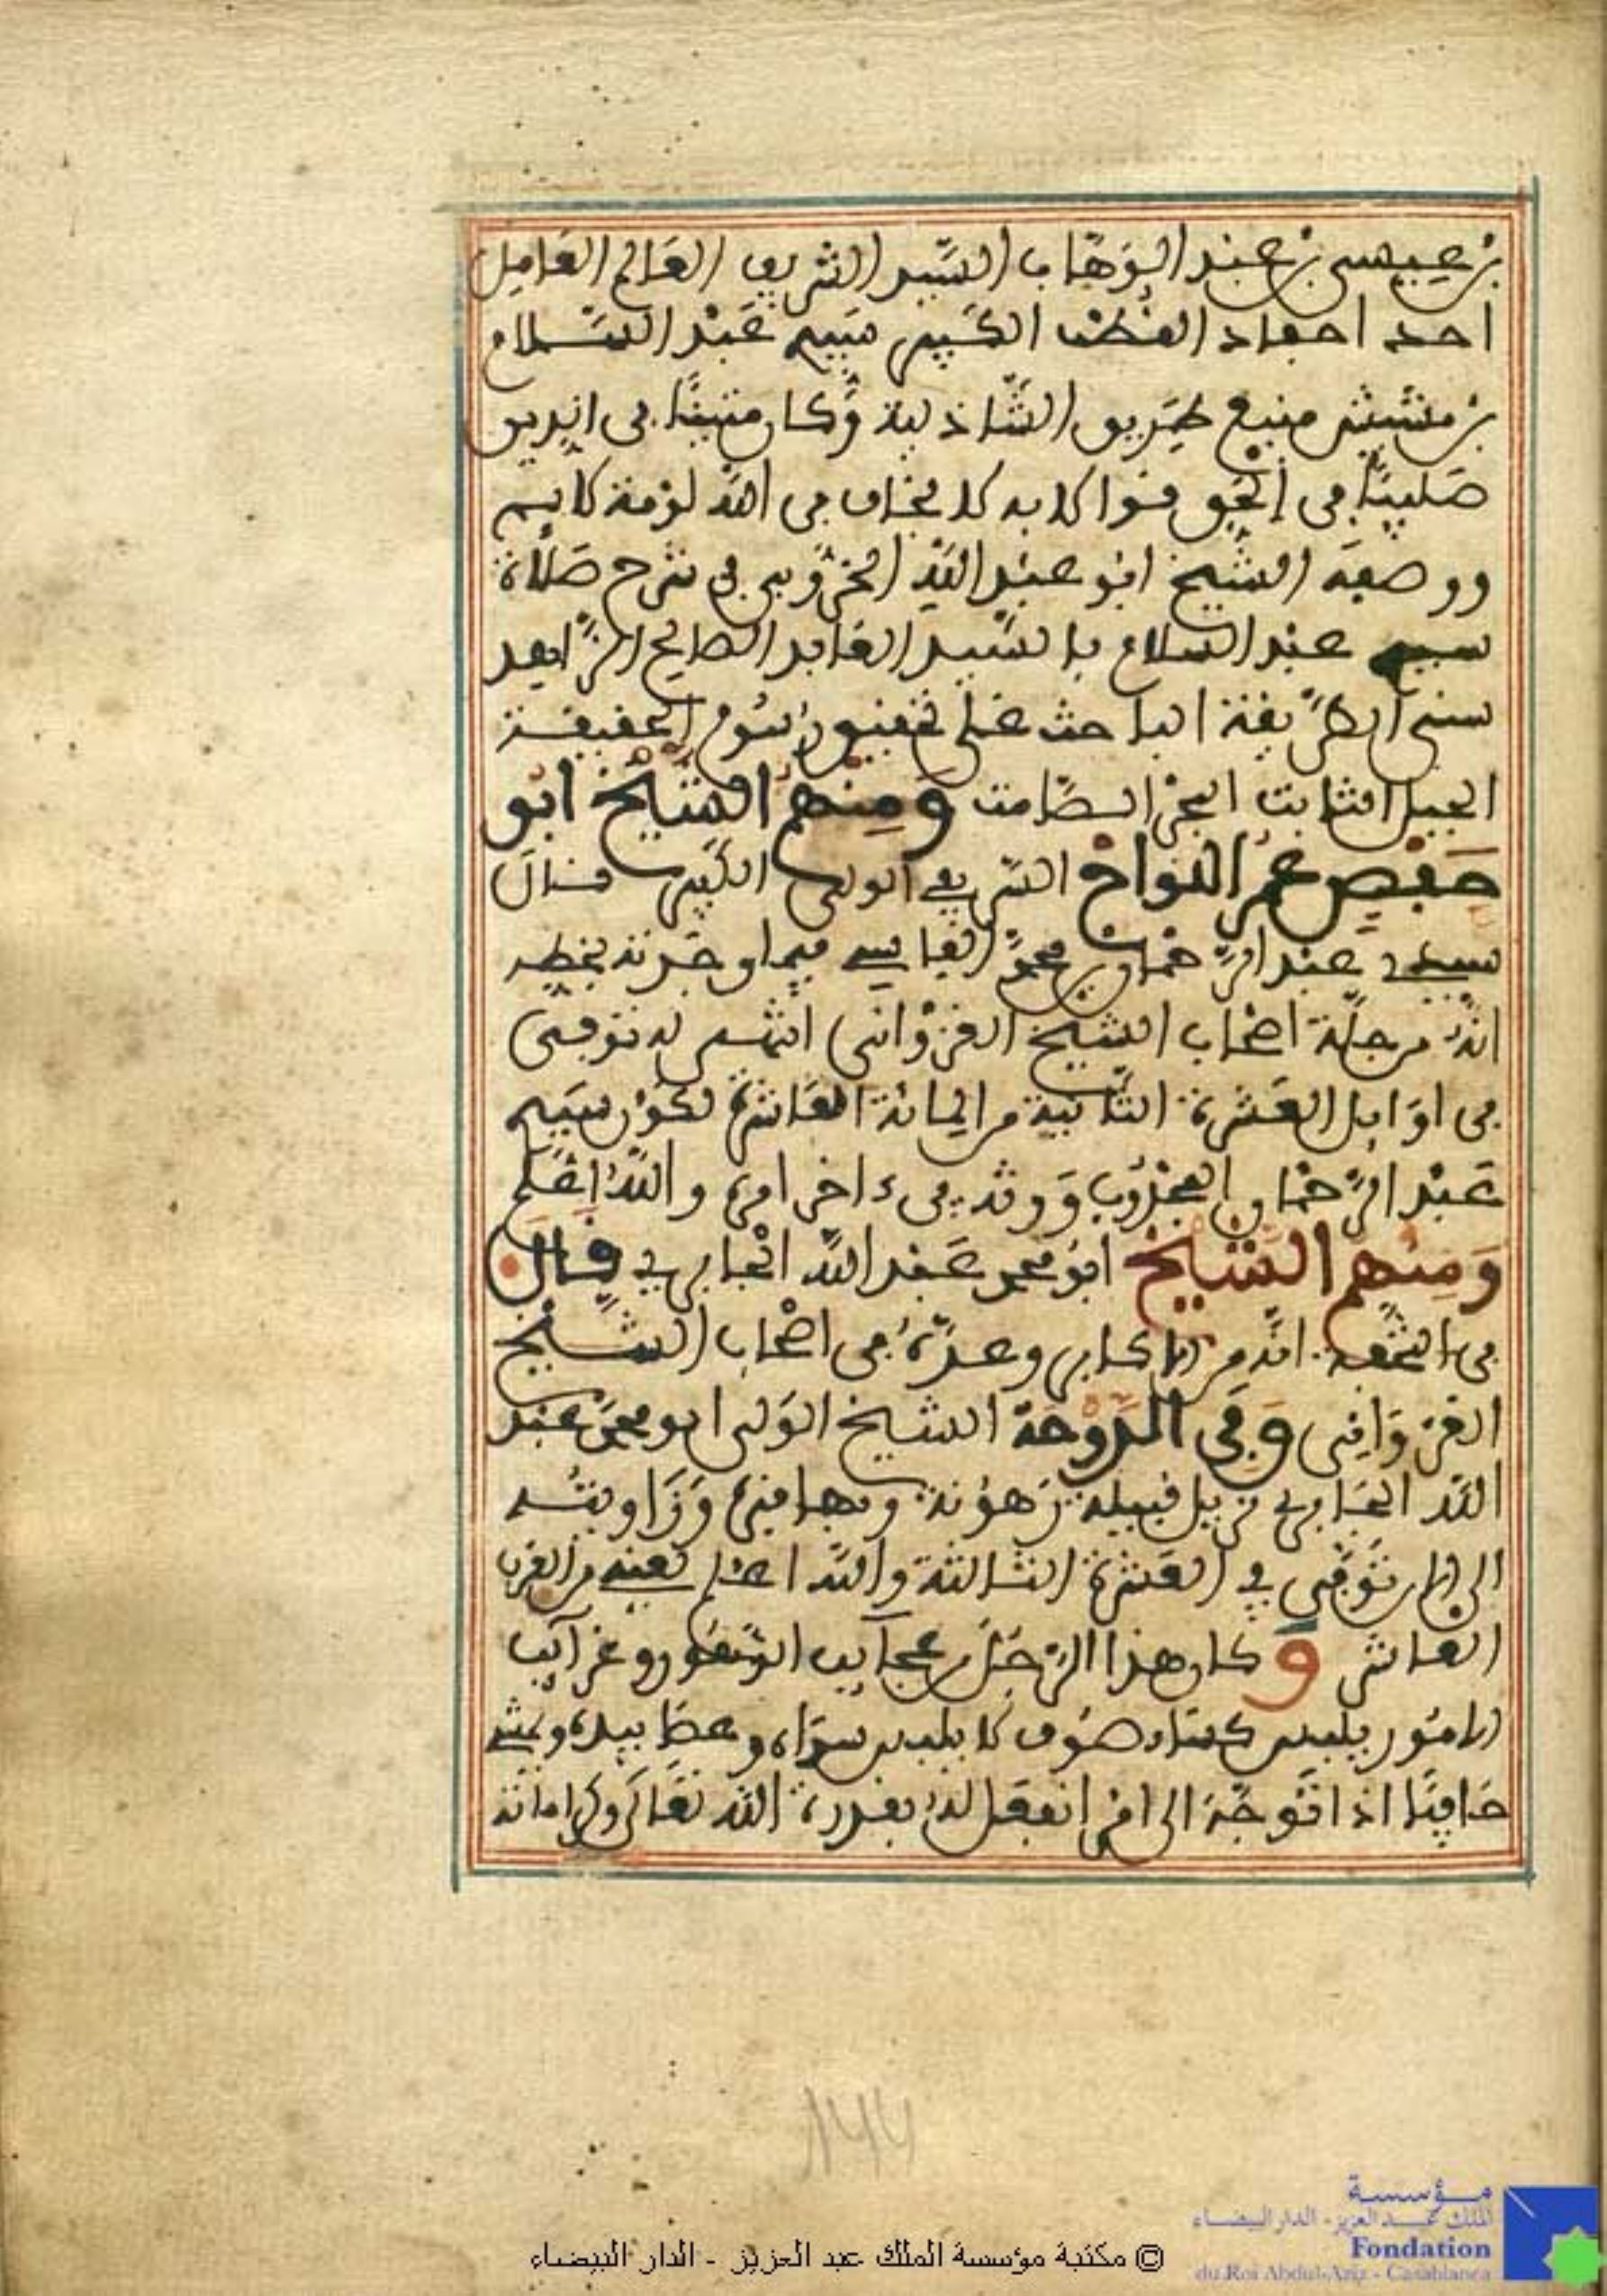 بن عيسى بن عبد الوهاب السيد الشريف العالم العامل
احد احفاد القطب الكبير سيدي عبد السلام
بن مشيش منبع طريق الشاذلية وكان متينا في الدين
صليبا في الحق قوالا به لا يخاف في الله لومة لايم
ووصفه الشيخ ابو عبد الله الخروبي في شرح صلاة
سيدي عبد السلام بالسيد العابد الصالح الزاهد
سني الطريقة الباحث على تحقيق رسوم الحقيقة
الجبل الثابت البحر الصامت ومنهم الشيخ ابو
حفص عمر الشريف الولي الكبير قال
سيدي عبد الرحمان بن محمد الفاسي فيما وجدته بخطه
انه من جلة اصحاب الشيخ الغزواني توفي
في اوايل العشرة الثانية من المائة العاشرة لكون سيدي
عبد الرحمان المجذوب ورثه في ءاخر امره والله اعلم
ومنهم الشيخ ابو محمد عبد الله الخياري قال
في التحفة انه من الاكابر وعده في اصحاب الشيخ
الغزواني وفي الدوحة الشيخ الولي ابو محمد عبد
الله الخياري نزيل قبيلة زهونة وبها قبره وزاويته
الى الان توفي في العشرة الثالثة والله اعلم يعني من القرن
العاشر وكان هذا الرجل من عجايب الدهور وغرايب
الامور يلبس كساء صوف لا يلبس سواه وعصا بيده ويمشي
حافيا اذا توجه الى امر انفعل له بقدرة الله تعالى وكراماته
١٤٤
مؤسسة
الملك عبد العزيز - الدار البيضاء
Fondation
du Roi Abdul-Aziz - Casablanca
© مكتبة مؤسسة الملك عبد العزيز - الدار البيضاء